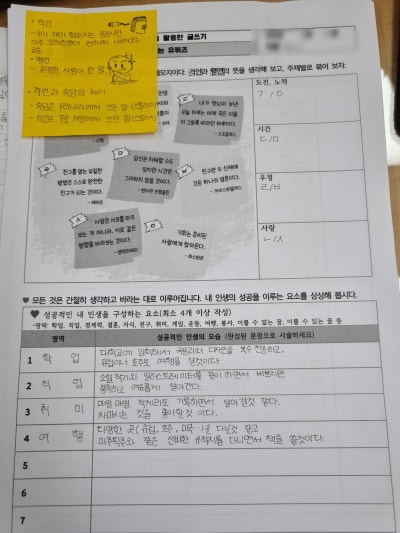 • 격언
• 명언
- 유명한 사람이 한 말
• 격언과 속담의 차이
활용한 글쓰기
는 유퀴즈
뜻을 생각해 보고, 주제별로 묶어 보자.
도전, 노력
ㄱ / ㅇ
시간
ㄷ / ㅁ
우정
ㄹ / ㅂ
사랑
ㄴ / ㅅ
내가 헛되이 보낸
오늘 하루는 어제 죽은 이들
이 그토록 바라던 하루이다.
- 소포클레스
당신은 지체할 수도
있지만 시간은
그러하지 않을 것이다.
- 벤저민 프랭클린
친구를 얻는 유일한
방법은 스스로 완전한
친구가 되는 것이다.
- 에머슨
친구란 두 신체에
깃든 하나의 영혼이다.
- 아리스토텔레스
사랑은 서로를 마주
보는 게 아니라, 서로 같은
방향을 바라보는 것이다.
- 생텍쥐페리
기회는 준비된
사람에게 찾아온다.
- 파스퇴르
♥ 모든 것은 간절히 생각하고 바라는 대로 이루어집니다. 내 인생의 성공을 이루는 요소를 상상해 봅시다.
♥ 성공적인 내 인생을 구성하는 요소(최소 4개 이상 작성)
-영역: 학업, 직업, 경제력, 결혼, 자식, 친구, 취미, 게임, 운동, 여행, 봉사, 이룰 수 없는 꿈, 이룰 수 있는 꿈 등
영역 성공적인 인생의 모습 (완성된 문장으로 서술하세요)
1 학업 대학교에 입학해서 국문과와 디자인을 복수 전공하고,
유럽이나 호주로 여행을 갈것이다.
2 직업 소설 작가와 일러스트레이터를 같이 하면서 바쁘지만
풍족하고 여유롭게 살아간다.
3 취미 매일매일 작게라도 기록하면서 살아 갈것 같다.
차마시는 것을 좋아할 것 이다.
4 여행 다양한 곳(유럽, 호주, 미국 )을 다닐것 같고
같은 신비한 유적지를 다니면서 책을 쓸것이다.
5
6
7